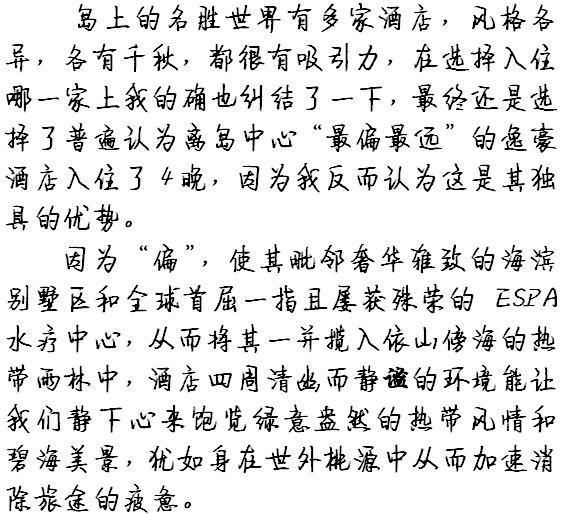 岛上的名胜世界有多家酒店，风格各
异，各有千秋，都很有吸引力，在选择入住
哪一家上我的确也纠结了一下，最终还是选
择了普遍认为离岛中心“最偏最远”的逸豪
酒店入住了4晚，因为我反而认为这是其独
具的优势。
因为“偏”，使其毗邻奢华雅致的海滨
别墅区和全球首屈一指且屡获殊荣的ESPA
水疗中心，从而将其一并揽入依山傍海的热
带雨林中，酒店四周清幽而静谧的环境能让
我们静下心来饱览绿意盎然的热带风情和
碧海美景，犹如身在世外桃源中从而加速消
除旅途的疲惫。